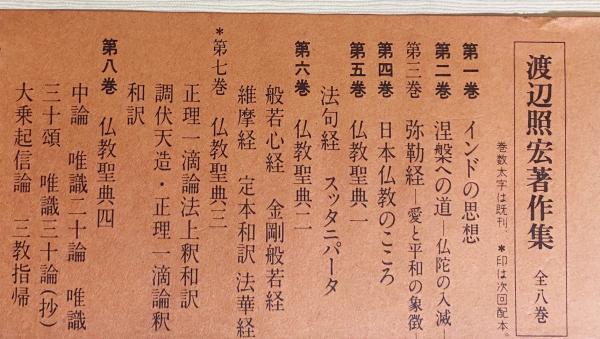 渡辺照宏著作集 全八巻
巻数太字は既刊。*印は次回配本。
第一巻 インドの思想
第二巻 涅槃への道―仏陀の入滅―
第三巻 弥勒経―愛と平和の象徴―
第四巻 日本仏教のこころ
第五巻 仏教聖典一
法句経 スッタニパータ
第六巻 仏教聖典二
般若心経 金剛般若経
維摩経 定本和訳 法華経
*第七巻 仏教聖典三
正理一滴論法上釈和訳
調伏天造・正理一滴論釈
和訳
第八巻 仏教聖典四
中論 唯識二十論 唯識
三十頌 唯識三十論(抄)
大乗起信論 三教指帰